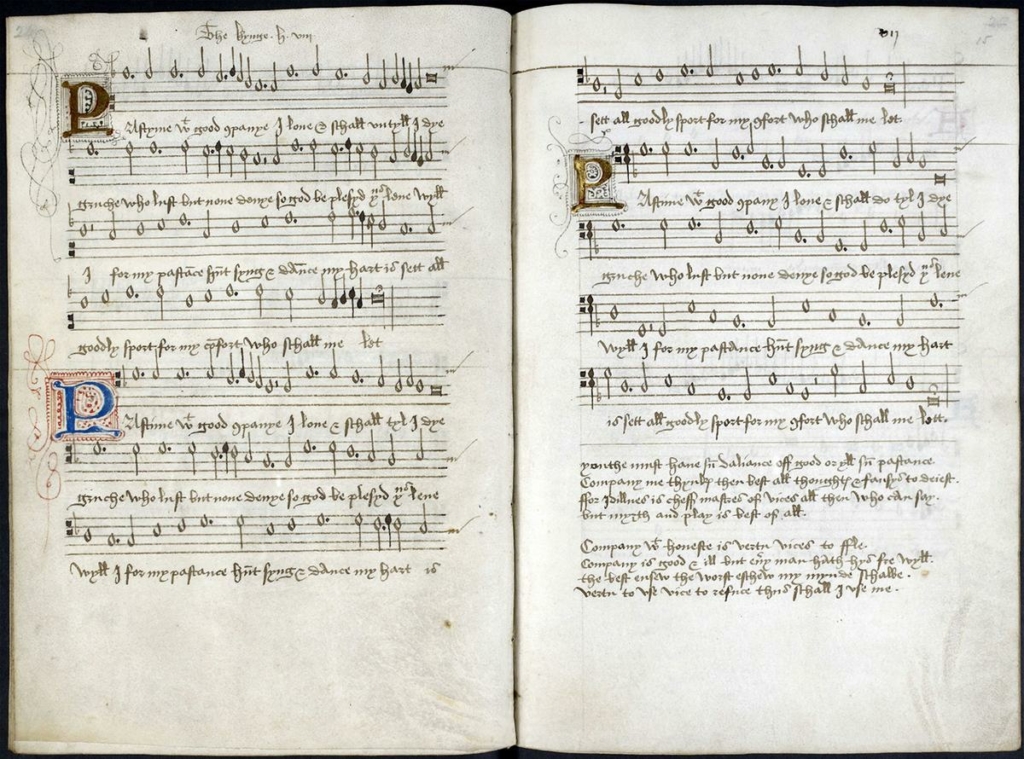 The kynge .h. viii
PAstyme wt good 9panye I loue & schall vntyll I dye
gruche who lust but none denye so god be plesyd yus leue wyll
I for my pastāce hūt syng & daūce my hart is sett all
goodly sport for my cōfort who schall me let
PAstime wt good 9panye I loue & schall tyl I dye
gruche who lust but none denye so god be plesyd yus leue
wyll I for my pastance hūt syng & daunce my hart is
vii
15
sett all goodly sport for my 9fort who schall me let
PAstime wt good 9pany I loue & schall do tyl I dye
gruche who lust but none denye so god be plesyd yus leue
wyll I for my pastance hūt syng & dance my hart
is sett all goodly sport for my 9fort who schall me lett.
youthe must haue sū daliance off good or yll sū pastance.
Company me thynks then best all thoughts & fansys to deiest.
ffor Idillnes is cheff mastres of vices all then who can say.
but myrth and play is best of all.
Company wt honeste is vertu vices to ffle.
Company is good & ill but eūy man hath hys fre wyll.
the best ensew the worst eschew my mynde schalbe.
vertu to vse vice to refuce thus schall I vse me.